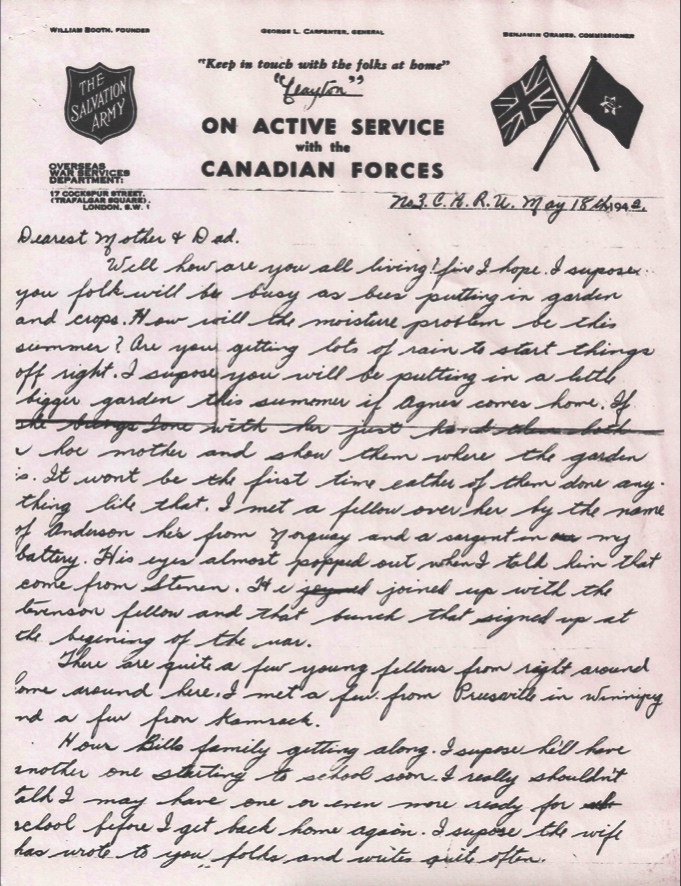 WILLIAM BOOTH, FOUNDER
GEORGE L. CARPENTER, GENERAL
BENJAMIN ORAMES, COMMISSIONER
THE
SALVATION
ARMY
"Keep in touch with the folks at home"
"Clayton"
ON ACTIVE SERVICE
with the
CANADIAN FORCES
OVERSEAS
WAR SERVICES
DEPARTMENT:
17 COCKSPUR STREET,
(TRAFALGAR SQUARE),
LONDON, S.W. 1
No 3. C. A. R. U. May 18th 1942.
Dearest Mother & Dad.
Well how are you all living? fine I hope. I supose
you folk will be busy as bees putting in garden
and crops. How will the moisture problem be this
summer? Are you getting lots of rain to start things
off right. I supose you will be putting in a little
bigger garden this summer if Agnes comes home. If
she brings Ione with her just hand them both
a hoe mother and show them where the garden
is. It wont be the first time eather of them done any-
thing like that. I met a fellow over her by the name
of Anderson he's from Norquay and a sargent in my
battery. His eyes almost popped out when I talk him that
come from Stenen. He joined up with the
tevenson fellow and that bunch that signed up at
the begining of the war.
There are quite a few young fellows from right around
ome around here. I met a few from in Winnipeg
nd a few from Kamsack.
Hour Bills family getting along. I supose he'll have
another one starting to school soon. I really shouldn't
talk I may have one or even more ready for
school before I get back home again. I supose the wife
has wrote to you folks and writes quite often.